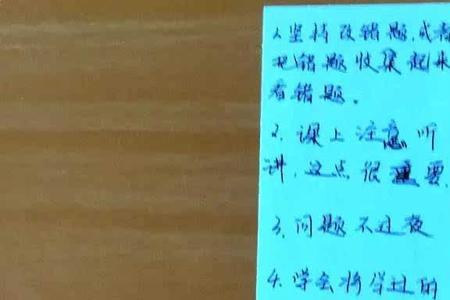 1.坚持改错题,或者
把错题收集起来
看错题。
2.课上注意听
讲,这点很重要
3.问题不过夜
4.学会将学过的